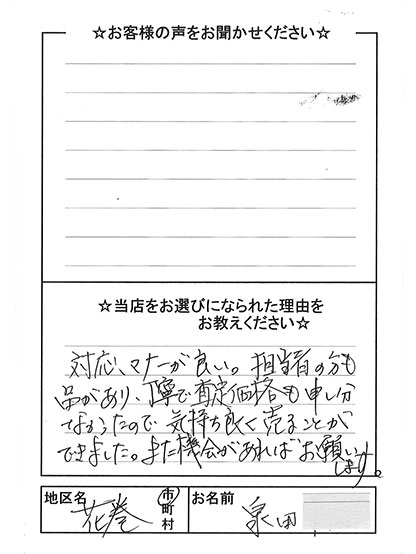 ☆お客様の声をお聞かせください☆
☆当店をお選びになられた理由を
お教えください☆
対応、マナーが良い。担当者の方も
品があり、丁寧で査定価格も申し分
なかったので気持ち良く売ることが
できました。また機会があればお願い
します。
地区名 花巻 市町村 お名前 泉田